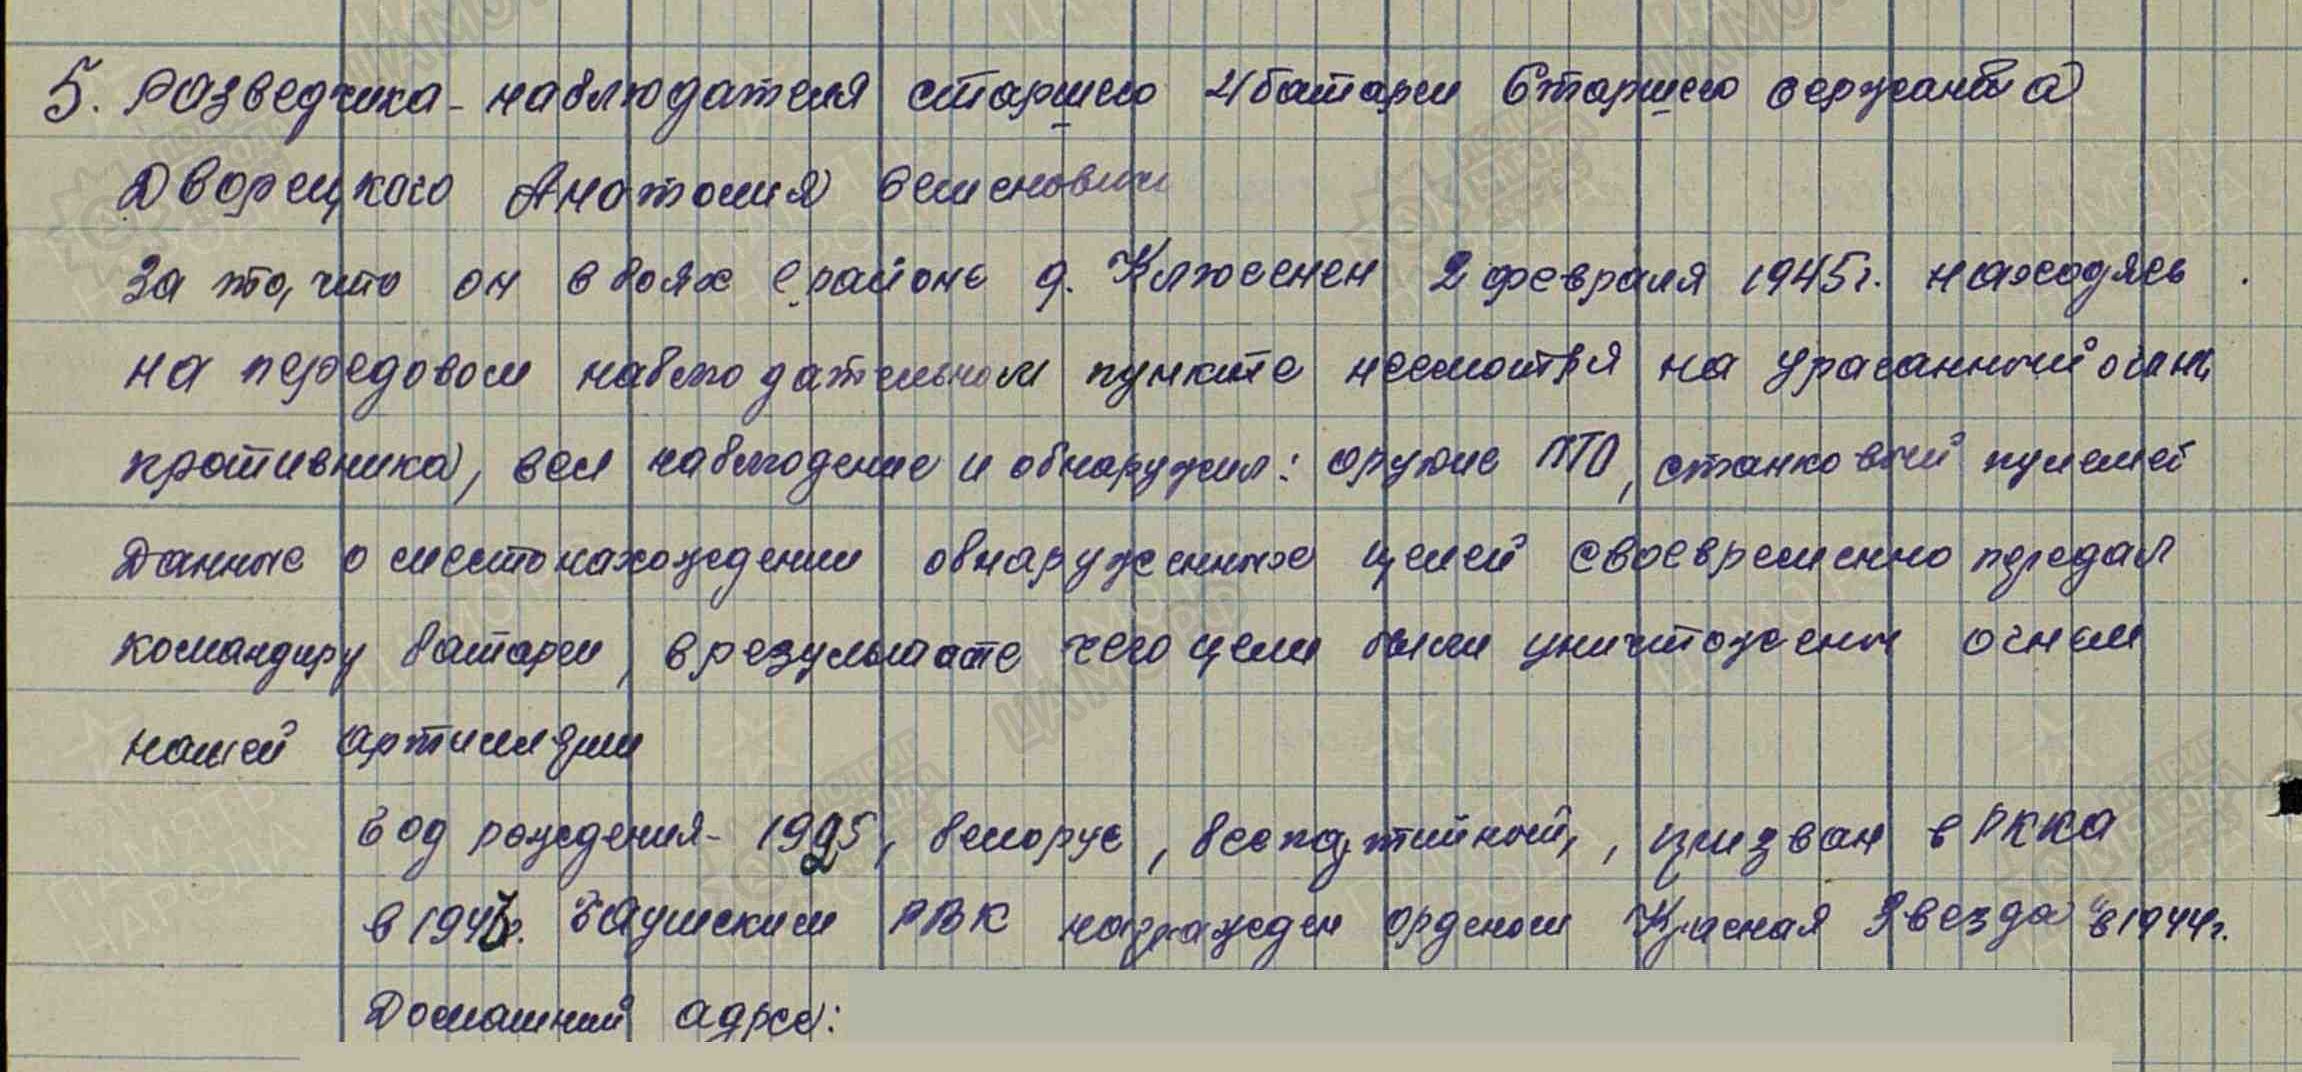 5. Разведчика-наблюдателя старшего 4 батареи Старшего сержанта
Дворецкого Анатолия Семенович
За то, что он в боях в районе д. Клюсенен 2 февраля 1945г. находясь
на передовом наблюдательном пункте несмотря на ураганный огонь
противника, вел наблюдение и обнаружил: оружие ПТО, станковый пулемет
Данные о местонахождении обнаруженные целей своевременно передал
командиру батареи, в результате чего цели были уничтожены огнем
нашей артиллерии
Год рождения - 1925, белорус, беспартийный, призван в РККА
в г. РВК награжден орденом Красная Звезда" в 1944г.
Домашний адрес: